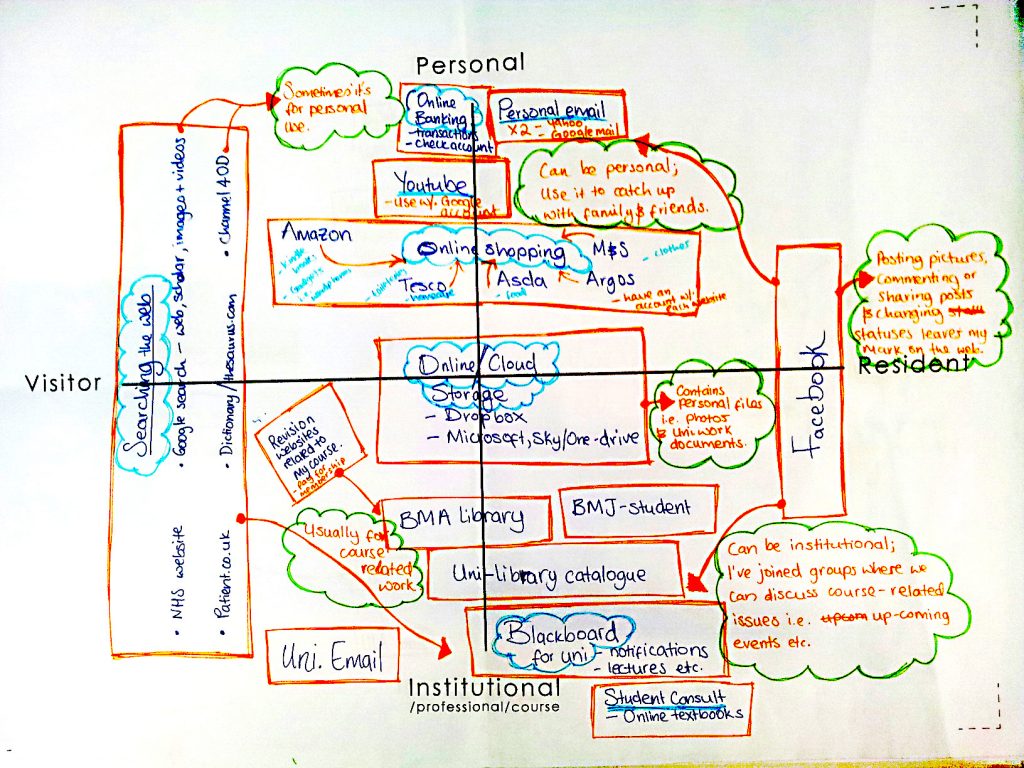 Personal
Sometimes it's
for personal
use.
Online
Banking
- transactions
- check account
Personal email
x2 = yahoo
Googlemail
Youtube
- Use w/. Google
account
Can be personal;
Use it to catch up
with family & friends.
Amazon
Online shopping
M&S
- clothes
- Kindle
Tesco
- homecare
Asda
- food
Argos
- have an
account w/.
each website
Searching the web
• Google search - web, scholar, images + videos
• channel 4OD
• Dictionary/thesaurus.com
• NHS website
• Patient.co.uk
Visitor
Resident
Online/Cloud
Storage
- Dropbox
- Microsoft, Sky/One-drive
Contains
personal files
i.e. photos
& Uni work
documents.
Facebook
Posting pictures,
Commenting or
Sharing posts
& changing
statuses leaves my
mark on the web.
Revision
websites
related to
My course.
- pay for
membership
BMA library
BMJ-student
Usually for
course
related
work
Uni-library catalogue
Can be institutional;
I've joined groups where we
can discuss course-related
issues i.e. upcom up-coming
events etc.
Uni. Email
Blackboard
for uni - notifications
- lectures etc.
Institutional
/professional/course
Student Consult
- Online textbooks